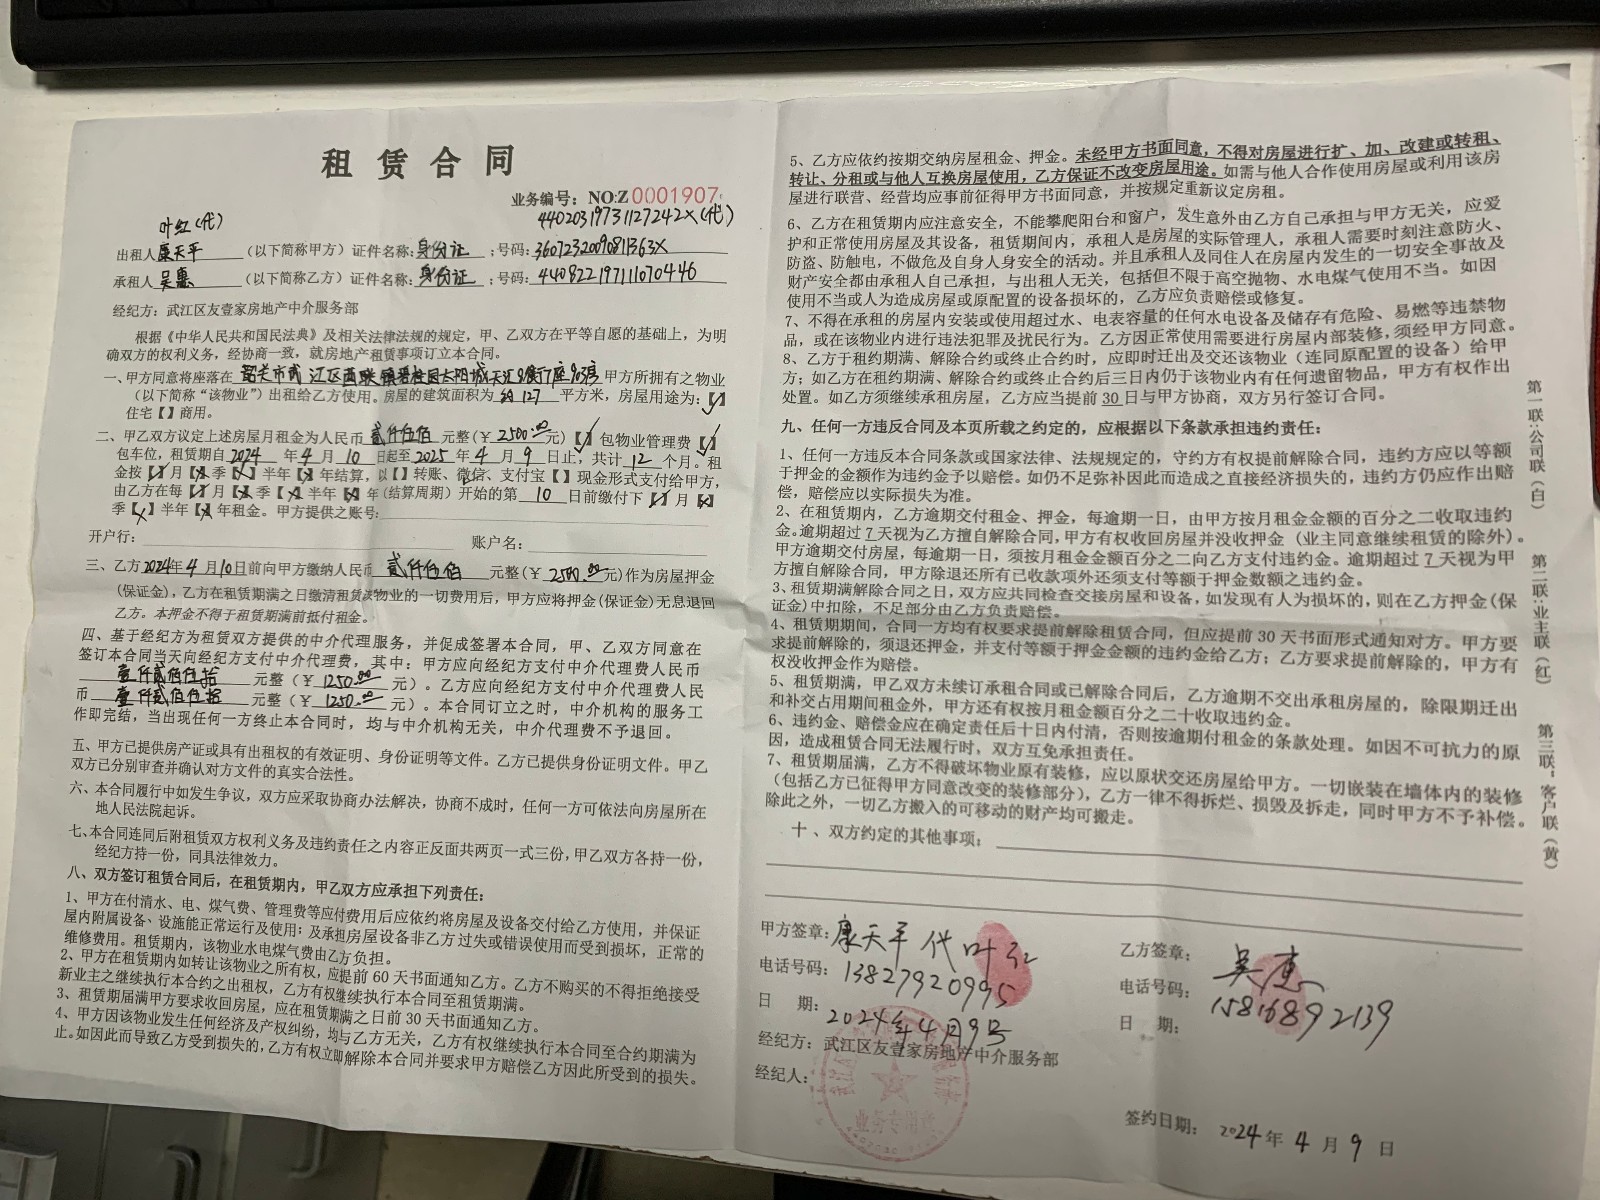 租赁合同
业务编号：NO:Z 0001907
叶红(代) 44020319731127242X(代)
出租人康天平（以下简称甲方）证件名称:身份证；号码:36072320090811363X
承租人吴惠（以下简称乙方）证件名称:身份证；号码:440822197111070446
经纪方：武江区友壹家房地产中介服务部
根据《中华人民共和国民法典》及相关法律法规的规定，甲、乙双方在平等自愿的基础上，为明
确双方的权利义务，经协商一致，就房地产租赁事项订立本合同。
一、甲方同意将座落在韶关市武江区西联镇碧桂园太阳城天汇 903房甲方所拥有之物业
（以下简称“该物业”）出租给乙方使用。房屋的建筑面积为约127平方米，房屋用途为：【√】
住宅【 】商用。
二、甲乙双方议定上述房屋月租金为人民币贰仟伍佰元整（￥2500.00元）【√】包物业管理费【√】
包车位，租赁期自2024年4月10日起至2025年4月9日止，共计12个月。租
金按【√】月【×】季【×】半年【×】年结算，以【 】转账、微信、支付宝【 】现金形式支付给甲方，
由乙方在每【√】月【×】季【×】半年【×】年(结算周期）开始的第10日前缴付下【√】月【×】
季【×】半年【×】年租金。甲方提供之账号:
开户行： 账户名：
三、乙方2024年4月10日前向甲方缴纳人民币贰仟伍佰元整（￥2500.00元)作为房屋押金
(保证金），乙方在租赁期满之日缴清租赁该物业的一切费用后，甲方应将押金(保证金)无息退回
乙方。本押金不得于租赁期满前抵付租金。
四、基于经纪方为租赁双方提供的中介代理服务，并促成签署本合同，甲、乙双方同意在
签订本合同当天向经纪方支付中介代理费，其中：甲方应向经纪方支付中介代理费人民币
壹仟贰佰伍拾元整（￥1250.00元）。乙方应向经纪方支付中介代理费人民
币壹仟贰佰伍拾元整（￥1250.00元）。本合同订立之时，中介机构的服务工
作即完结，当出现任何一方终止本合同时，均与中介机构无关，中介代理费不予退回。
五、甲方已提供房产证或具有出租权的有效证明、身份证明等文件。乙方已提供身份证明文件。甲乙
双方已分别审查并确认对方文件的真实合法性。
六、本合同履行中如发生争议，双方应采取协商办法解决，协商不成时，任何一方可依法向房屋所在
地人民法院起诉。
七、本合同连同后附租赁双方权利义务及违约责任之内容正反面共两页一式三份，甲乙双方各持一份，
经纪方持一份，同具法律效力。
八、双方签订租赁合同后，在租赁期内，甲乙双方应承担下列责任：
1、甲方在付清水、电、煤气费、管理费等应付费用后应依约将房屋及设备交付给乙方使用，并保证
屋内附属设备、设施能正常运行及使用；及承担房屋设备非乙方过失或错误使用而受到损坏，正常的
维修费用。租赁期内，该物业水电煤气费由乙方负担。
2、甲方在租赁期内如转让该物业之所有权，应提前60天书面通知乙方。乙方不购买的不得拒绝接受
新业主之继续执行本合约之出租权，乙方有权继续执行本合同至租赁期满。
3、租赁期届满甲方要求收回房屋，应在租赁期满之日前30天书面通知乙方。
4、甲方因该物业发生任何经济及产权纠纷，均与乙方无关，乙方有权继续执行本合同至合约期满为
止。如因此而导致乙方受到损失的，乙方有权立即解除本合同并要求甲方赔偿乙方因此所受到的损失。
5、乙方应依约按期交纳房屋租金、押金。未经甲方书面同意，不得对房屋进行扩、加、改建或转租、
转让、分租或与他人互换房屋使用，乙方保证不改变房屋用途。如需与他人合作使用房屋或利用该房
屋进行联营、经营均应事前征得甲方书面同意，并按规定重新议定房租。
6、乙方在租赁期内应注意安全，不能攀爬阳台和窗户，发生意外由乙方自己承担与甲方无关，应爱
护和正常使用房屋及其设备，租赁期间内，承租人是房屋的实际管理人，承租人需要时刻注意防火、
防盗、防触电，不做危及自身人身安全的活动。并且承租人及同住人在房屋内发生的一切安全事故及
财产安全都由承租人自己承担，与出租人无关，包括但不限于高空抛物、水电煤气使用不当。如因
使用不当或人为造成房屋或原配置的设备损坏的，乙方应负责赔偿或修复。
7、不得在承租的房屋内安装或使用超过水、电表容量的任何水电设备及储存有危险、易燃等违禁物
品，或在该物业内进行违法犯罪及扰民行为。乙方因正常使用需要进行房屋内部装修，须经甲方同意。
8、乙方于租约期满、解除合约或终止合约时，应即时迁出及交还该物业（连同原配置的设备）给甲
方；如乙方在租约期满、解除合约或终止合约后三日内仍于该物业内有任何遗留物品，甲方有权作出
处置。如乙方须继续承租房屋，乙方应当提前30日与甲方协商，双方另行签订合同。
九、任何一方违反合同及本页所载之约定的，应根据以下条款承担违约责任：
1、任何一方违反本合同条款或国家法律、法规规定的，守约方有权提前解除合同，违约方应以等额
于押金的金额作为违约金予以赔偿。如仍不足弥补因此而造成之直接经济损失的，违约方仍应作出赔
偿，赔偿应以实际损失为准。
2、在租赁期内，乙方逾期交付租金、押金，每逾期一日，由甲方按月租金金额的百分之二收取违约
金。逾期超过7天视为乙方擅自解除合同，甲方有权收回房屋并没收押金（业主同意继续租赁的除外）。
甲方逾期交付房屋，每逾期一日，须按月租金金额百分之二向乙方支付违约金。逾期超过7天视为甲
方擅自解除合同，甲方除退还所有已收款项外还须支付等额于押金数额之违约金。
3、租赁期满解除合同之日，双方应共同检查交接房屋和设备，如发现有人为损坏的，则在乙方押金(保
证金)中扣除，不足部分由乙方负责赔偿。
4、租赁期期间，合同一方均有权要求提前解除租赁合同，但应提前30天书面形式通知对方。甲方要
求提前解除的，须退还押金，并支付等额于押金金额的违约金给乙方；乙方要求提前解除的，甲方有
权没收押金作为赔偿。
5、租赁期满，甲乙双方未续订承租合同或已解除合同后，乙方逾期不交出承租房屋的，除限期迁出
和补交占用期间租金外，甲方还有权按月租金额百分之二十收取违约金。
6、违约金、赔偿金应在确定责任后十日内付清，否则按逾期付租金的条款处理。如因不可抗力的原
因，造成租赁合同无法履行时，双方互免承担责任。
7、租赁期届满，乙方不得破坏物业原有装修，应以原状交还房屋给甲方。一切嵌装在墙体内的装修
（包括乙方已征得甲方同意改变的装修部分），乙方一律不得拆烂、损毁及拆走，同时甲方不予补偿。
除此之外，一切乙方搬入的可移动的财产均可搬走。
十、双方约定的其他事项：
甲方签章：康天平代叶红
电话号码：13827920995
日 期：2024年4月9号
经纪方：武江区友壹家房地产中介服务部
经纪人：
业务专用章
乙方签章：吴惠
电话号码：15816892139
日 期：
签约日期：2024年4月9日
第一联：公司联（白）
第二联：业主联（红）
第三联：客户联（黄）